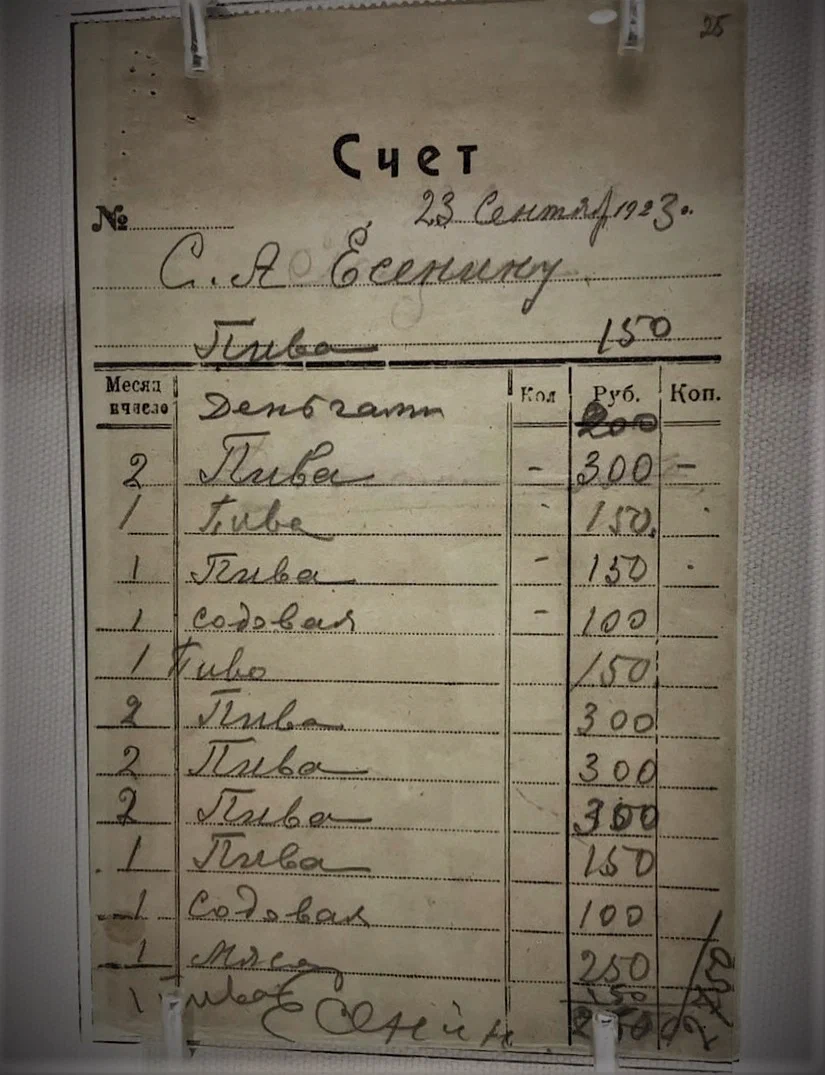 25
Счет
№ 23 Сентяб 1923.
С. А Есенину
Пива 150
Месяц и число Деньгами Кол Руб. Коп.
200
2 Пива - 300 -
1 Пива - 150.
1 Пива - 150
1 содовая - 100
1 Пиво 150
2 Пива 300
2 Пива 300
2 Пива 300
1 Пива 150
1 Содовая 100
1 Мясо 250
1 Пива 150
Есенин